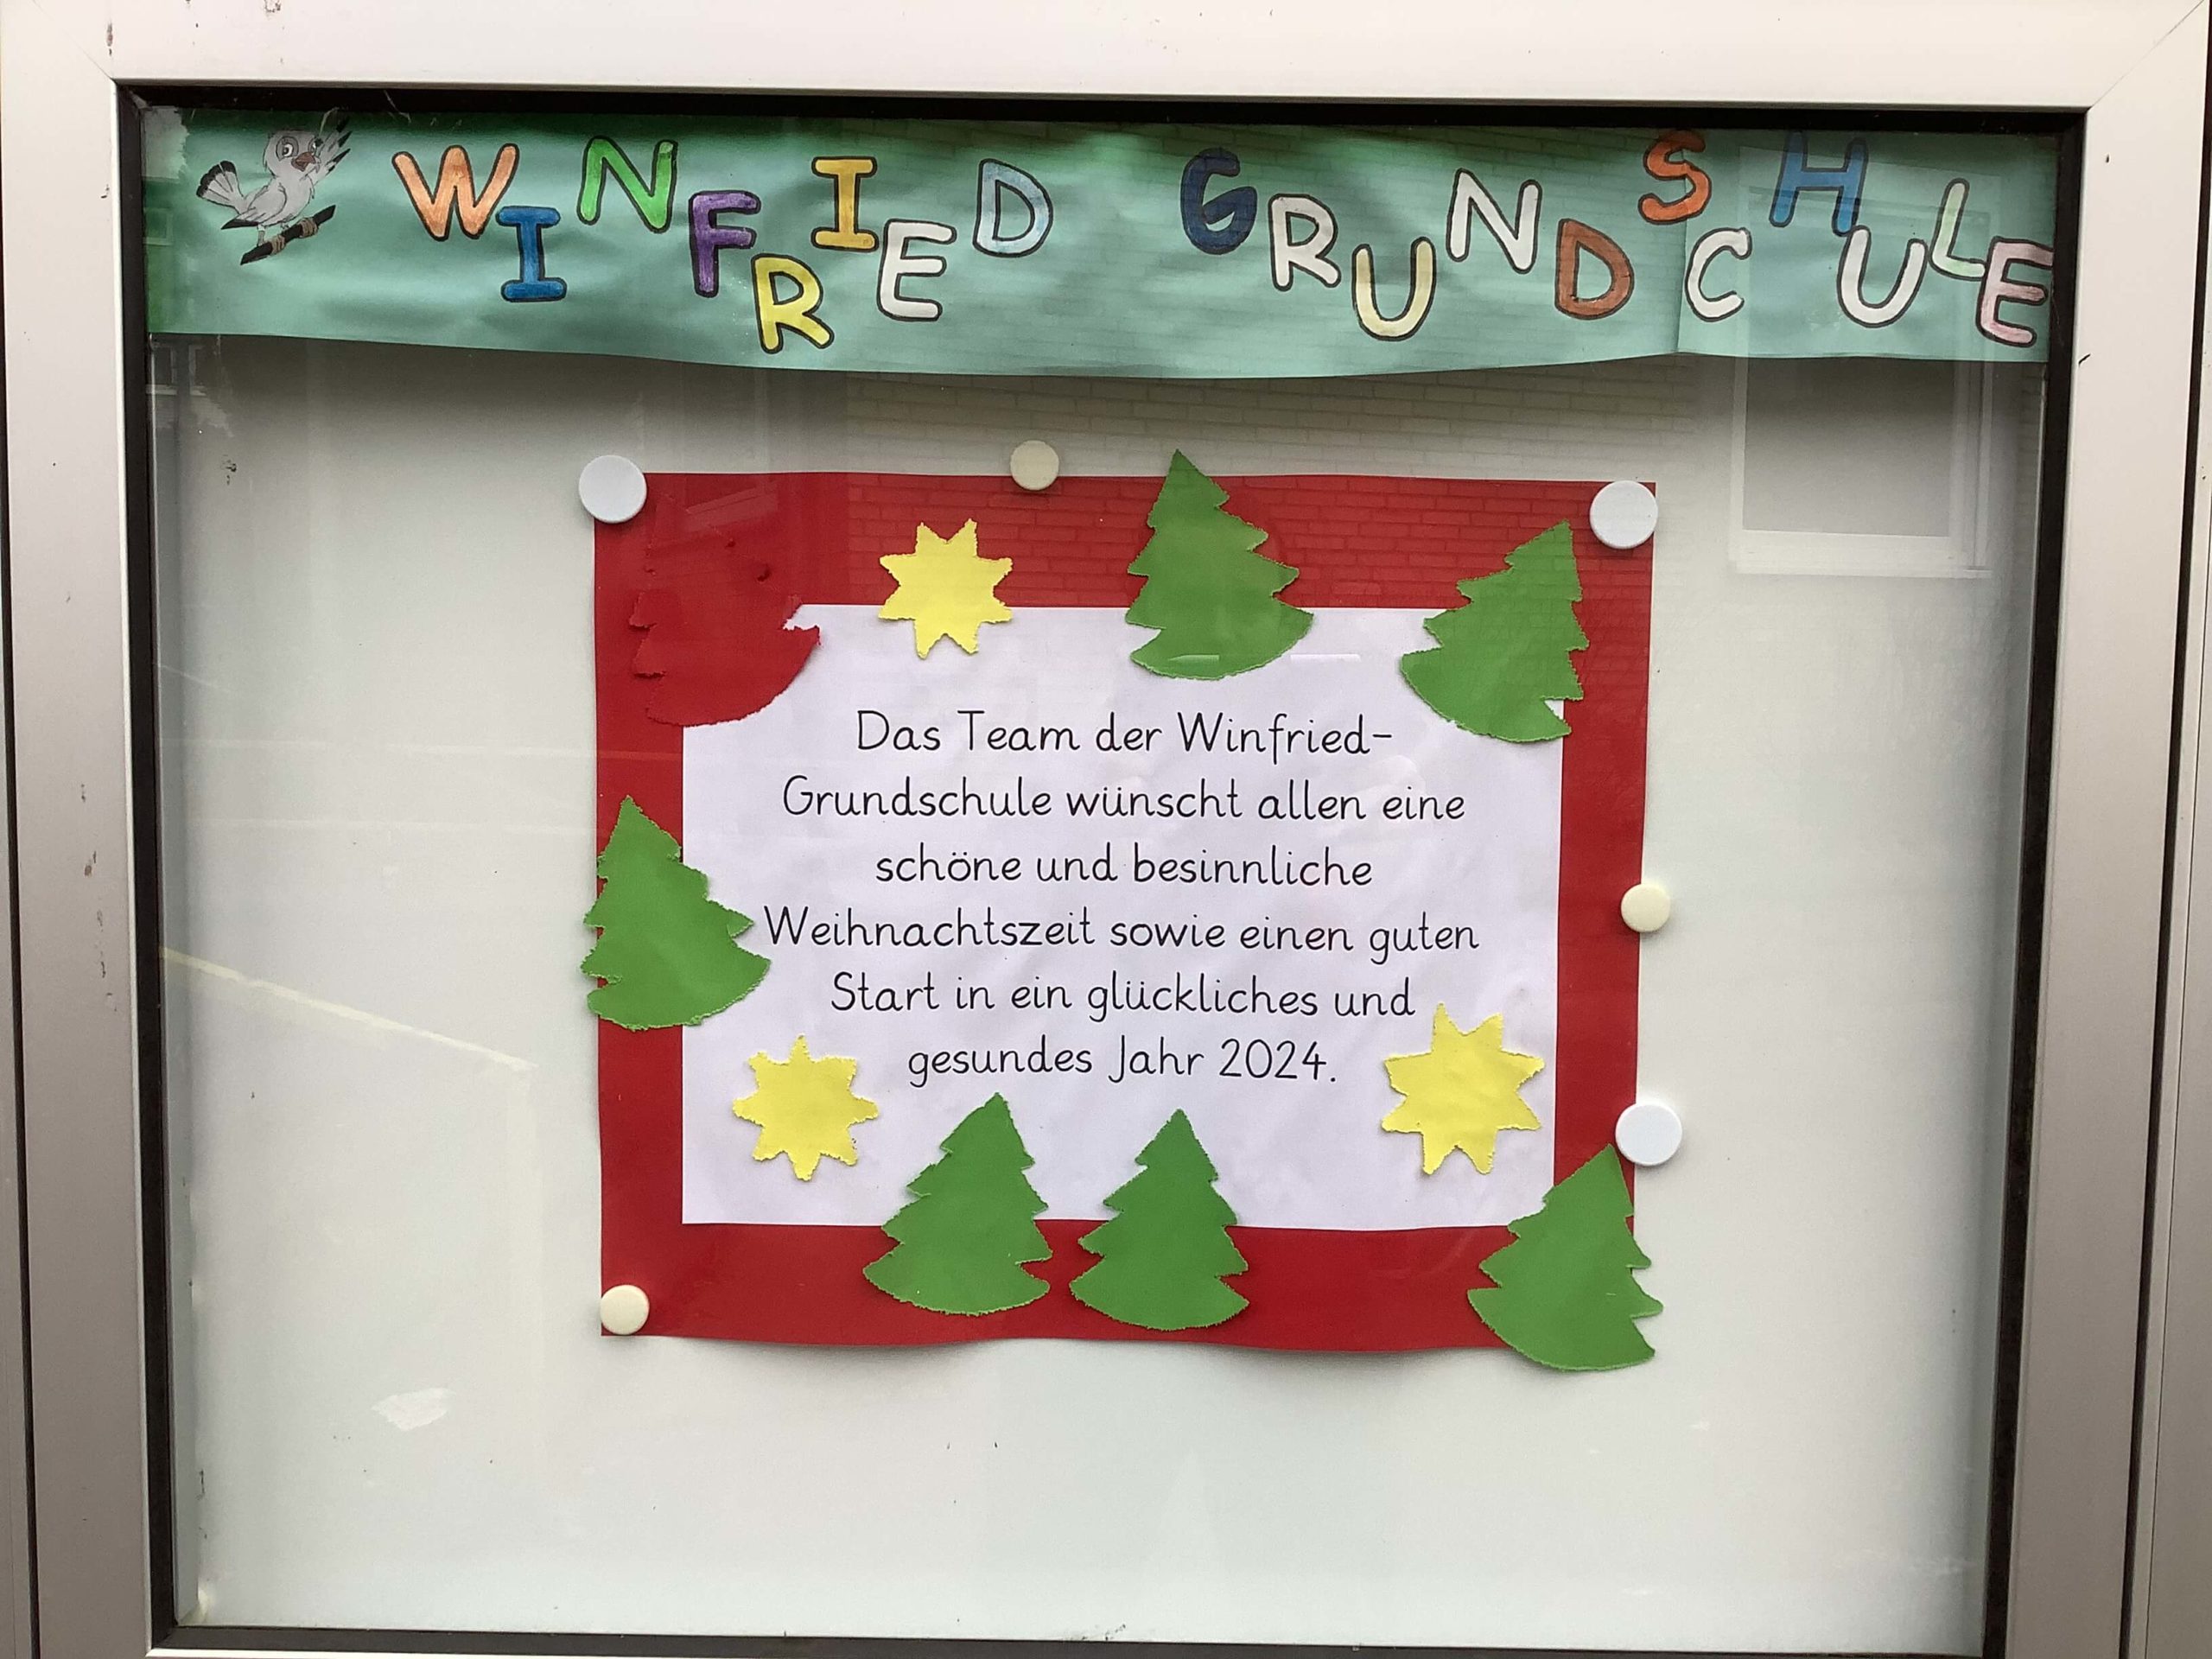 WINFRIED GRUNDSCHULE
Das Team der Winfried-
Grundschule wünscht allen eine
schöne und besinnliche
Weihnachtszeit sowie einen guten
Start in ein glückliches und
gesundes Jahr 2024.